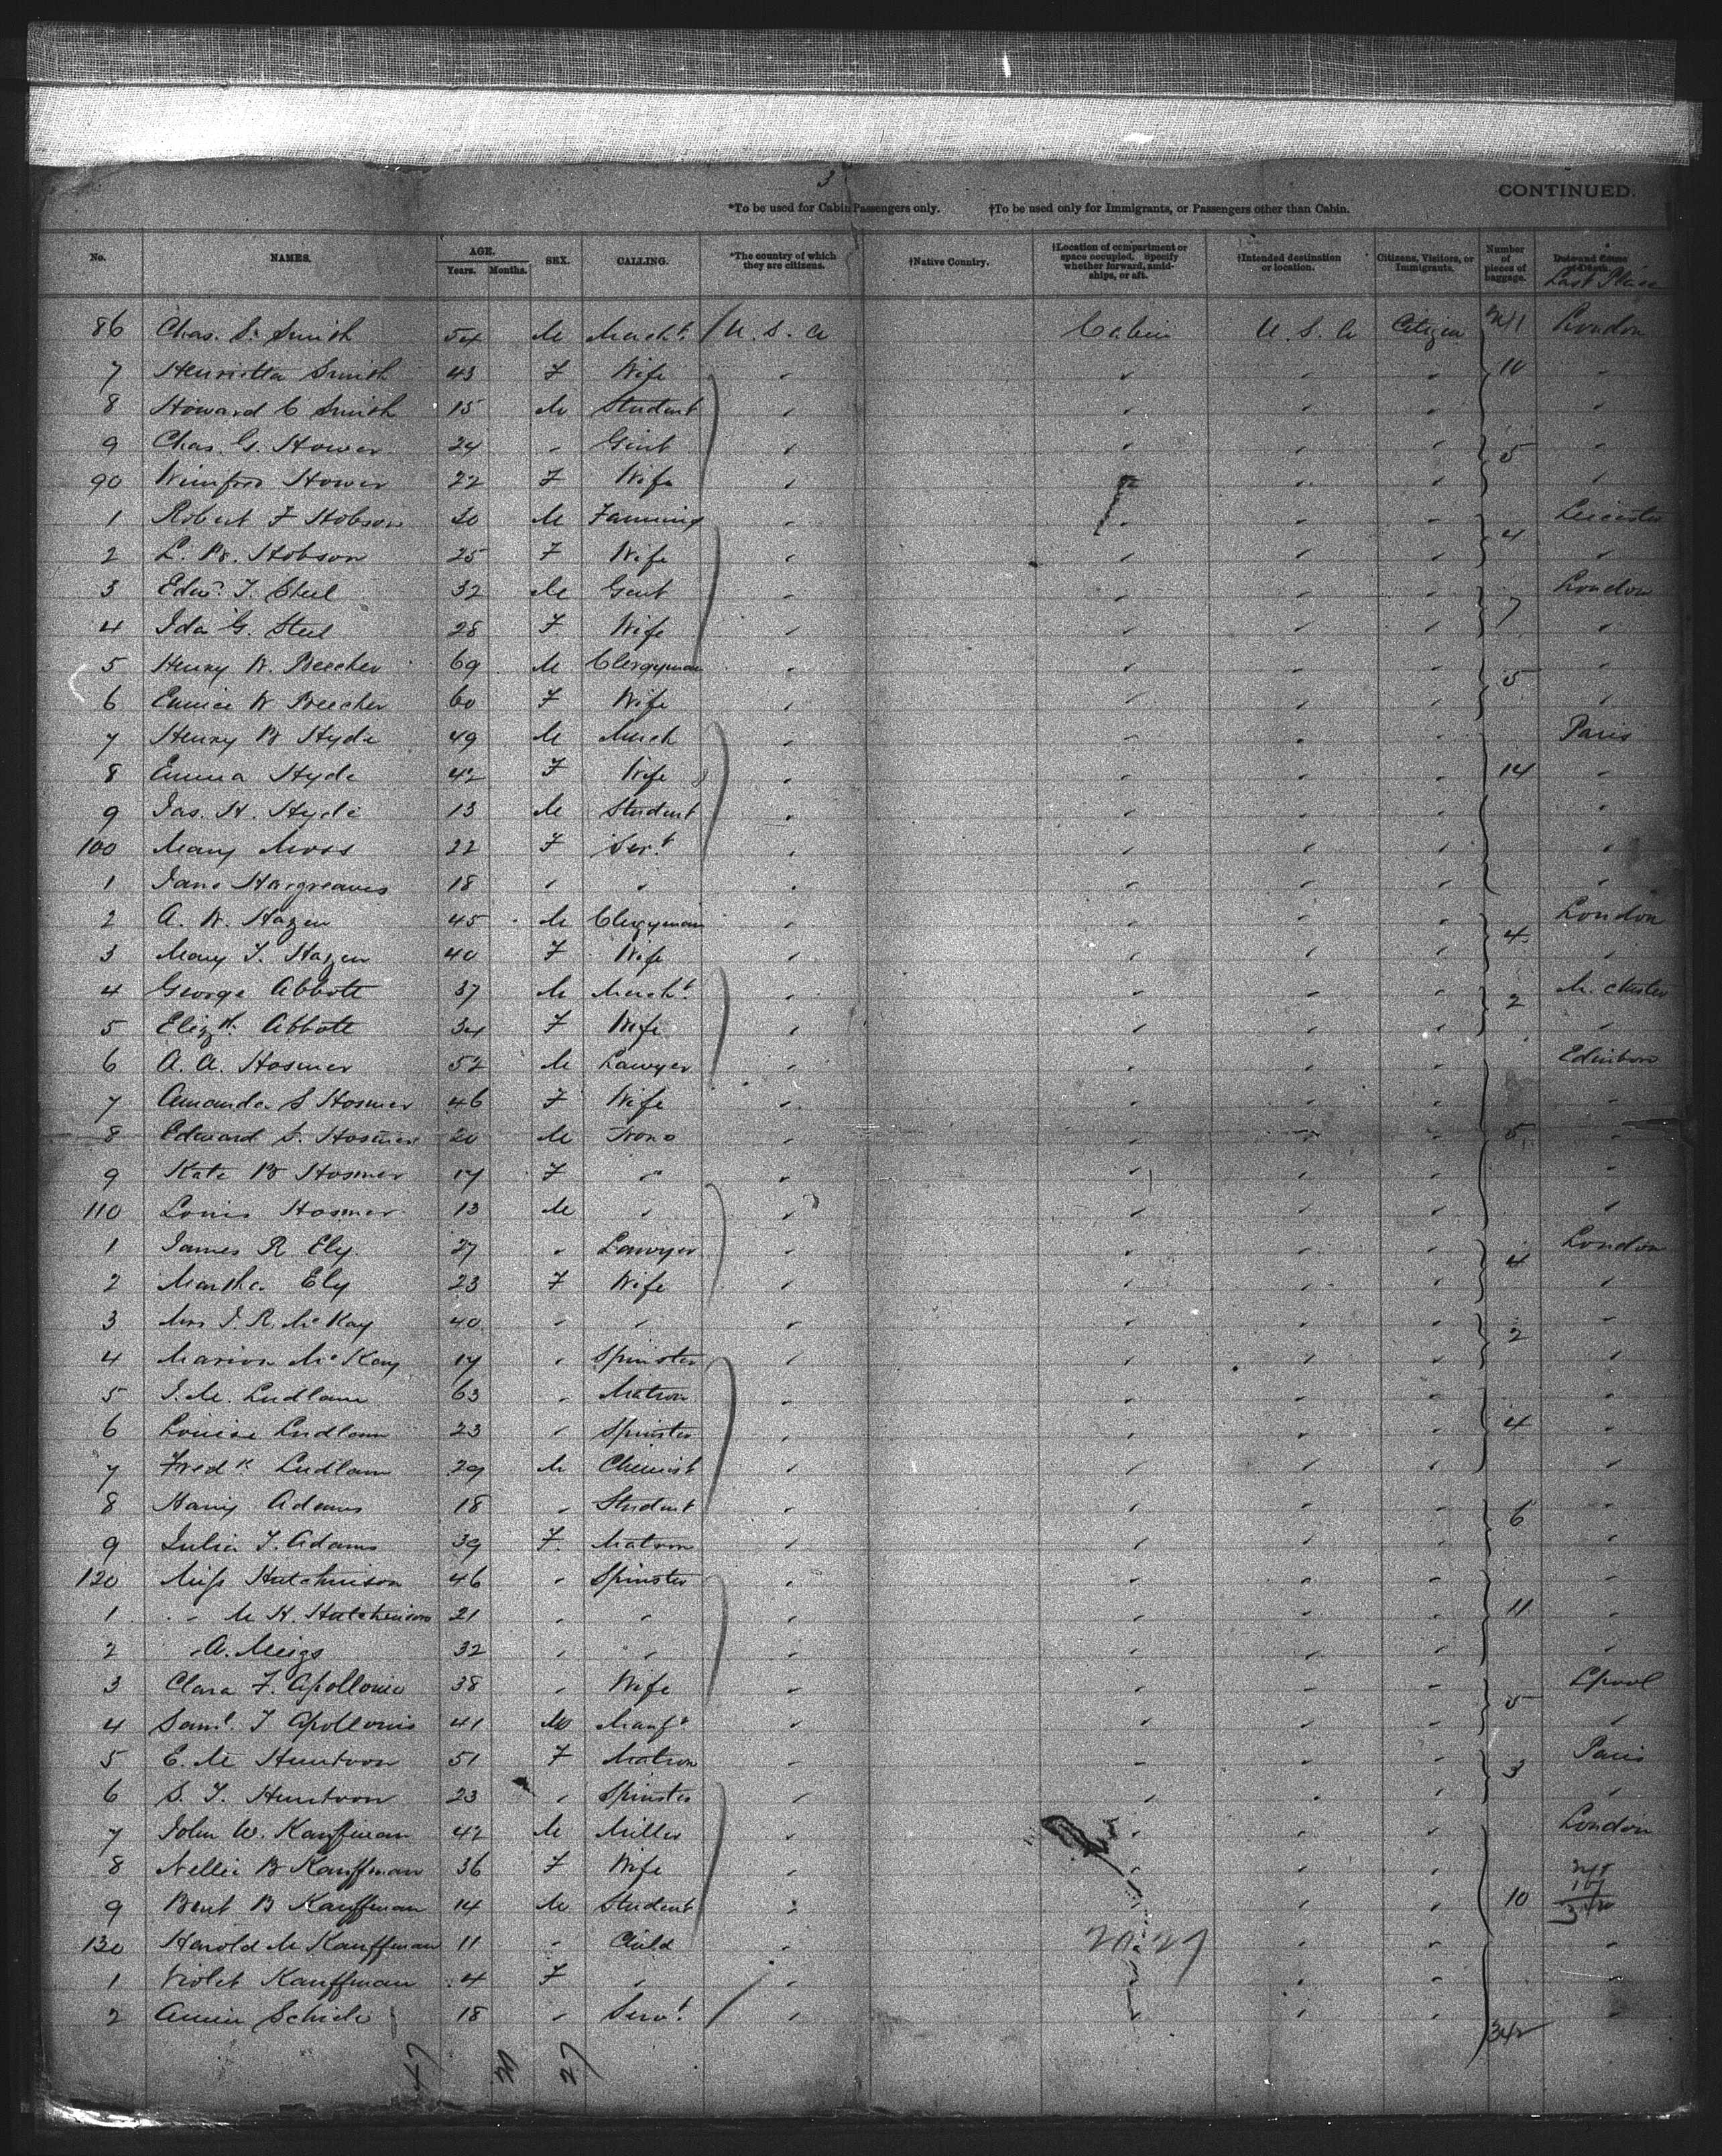 3
CONTINUED.
*To be used for Cabin Passengers only. †To be used only for Immigrants, or Passengers other than Cabin.
No. NAMES. AGE. Years. Months. SEX. CALLING. *The country of which they are citizens. †Native Country. †Location of compartment or space occupied. Specify whether forward, amidships, or aft. †Intended destination or location. Citizens, Visitors, or Immigrants. Number of pieces of baggage. Date and Cause of Death. Last Place
86 Chas. S. Smith 54 M Mercht U. S. A Cabin U. S. A Citizen 241 London
7 Henrietta Smith 43 F Wife " " " " 10 "
8 Howard C Smith 15 M Student " " " " "
9 Chas. G. Hower 24 " Gent " " " " 5 "
90 Hower 22 F Wife " " " " "
1 Robert F Hobson 30 M Farming " " " " Leicester
2 L. B. Hobson 25 F Wife " " " " 4 "
3 Edwd. T. Steel 32 M Gent " " " " London
4 Ida G. Steel 28 F Wife " " " " 7 "
5 Henry W. Beecher 69 M Clergyman " " " " "
6 Eunice W Beecher 60 F Wife " " " " 5 "
7 Henry B Hyde 49 M Merch " " " " Paris
8 Emma Hyde 42 F Wife " " " " 14 "
9 Jas. H. Hyde 13 M Student " " " " "
100 Mary Moss 22 F Servt " " " " "
1 Jane Hargreaves 18 " " " " " " "
2 A. W. Hazen 45 M Clergyman " " " " London
3 Mary T. Hazen 40 F Wife " " " " 4 "
4 George Abbott 37 M Mercht. " " " " 2 M.chester
5 Elizth. Abbott 34 F Wife " " " " "
6 A. A. Hosmer 52 M Lawyer " " " " Edinboro
7 Amanda S Hosmer 46 F Wife " " " " "
8 Edward S. Hosmer 20 M None " " " " 5 "
9 Kate B Hosmer 17 F " " " " " "
110 Louis Hosmer 13 M " " " " " "
1 James R Ely 27 " Lawyer " " " " London
2 Martha Ely 23 F Wife " " " " 4 "
3 Mrs J. R. McKay 40 " " " " " " "
4 Marion McKay 17 " Spinster " " " " 2 "
5 J. M. Ludlam 63 " Matron " " " " "
6 Louise Ludlam 23 " Spinster " " " " 4 "
7 Fredk Ludlam 29 M Chemist " " " " "
8 Harry Adams 18 " Student " " " " 6 "
9 Julia T. Adams 39 F. Matron " " " " "
120 Miss Hutchinson 46 " Spinster " " " " "
1 " M H. Hutchinson 21 " " " " " " 11 "
2 " A. Meigs 32 " " " " " " "
3 Clara F. Apollonio 38 " Wife " " " " Lpool
4 Saml. T Apollonio 41 M Manfr " " " " 5 "
5 E. M Huntoon 51 F Matron " " " " 3 Paris
6 S. T. Huntoon 23 " Spinster " " " " "
7 John W. Kauffman 42 M Miller " " " " London
8 Nellie B Kauffman 36 F Wife " " " "
9 B Kauffman 14 M Student " " " " 10
130 Harold M Kauffman 11 " Child " " " "
1 Violet Kauffman 4 F " " " " "
2 Annie 18 " Servt. " " " "
342
47 20 27